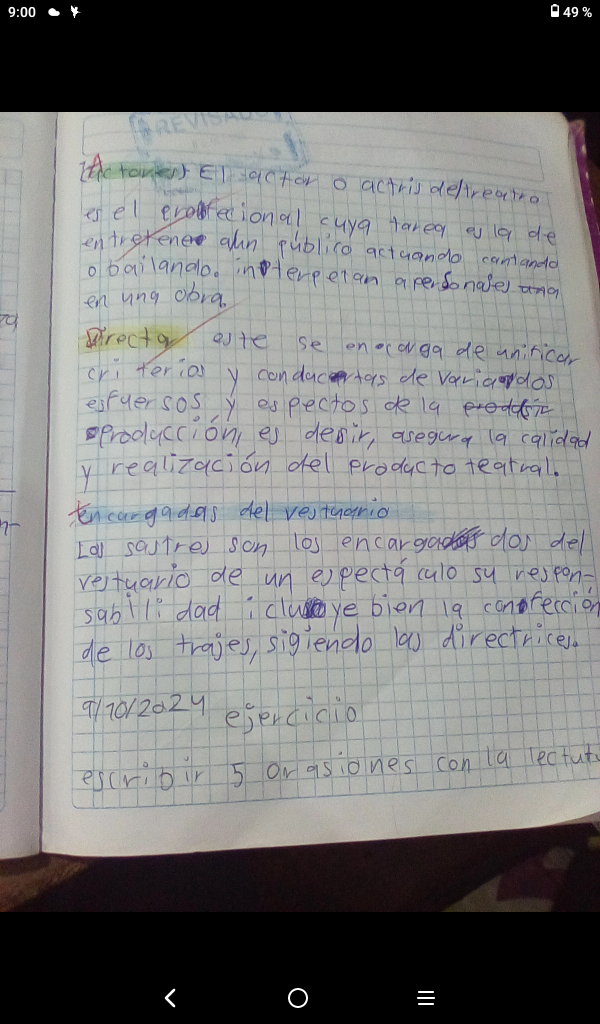 9:00
49 %
REVISADO
Actores: El actor o actris del treatro
es el profecional cuya tarea es la de
entretener aun público actuando cantando
o bailando. interpetan a personajes
en una obra.
Director este se encarga de unificar
criterios y conductas de variados
esfuersos y espectos de la
producción, es desir, asegura la calidad
y realización del producto teatral.
Encargadas del vestuario
Los sastres son los encargados del
vestuario de un espectáculo su respon-
sabilidad icluye bien la confección
de los trajes, sigiendo las directrices.
9/10/2024 ejercicio
escribir 5 orasiones con la lectut